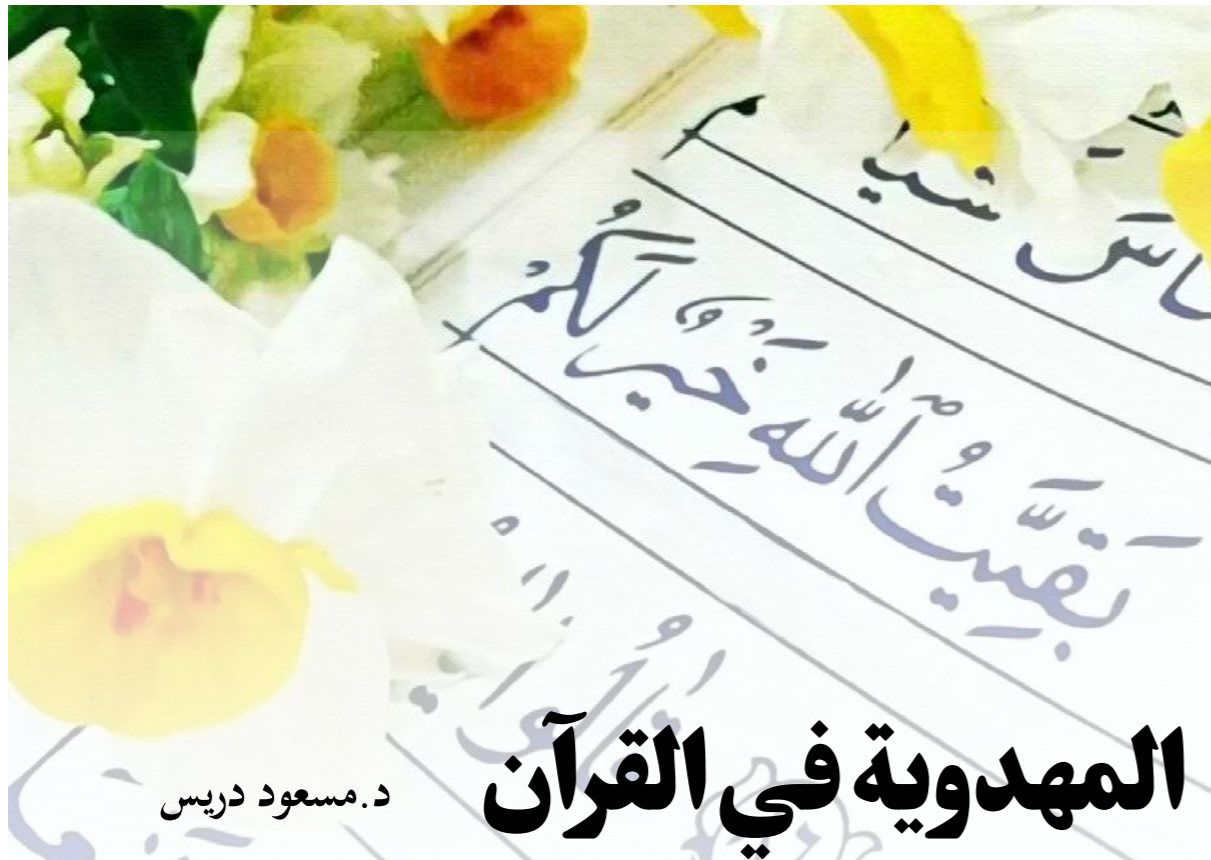 بَقِيَّتُ ٱللَّهِ خَيْرٌ لَكُمْ
المهدوية في القرآن
د.مسعود دريس